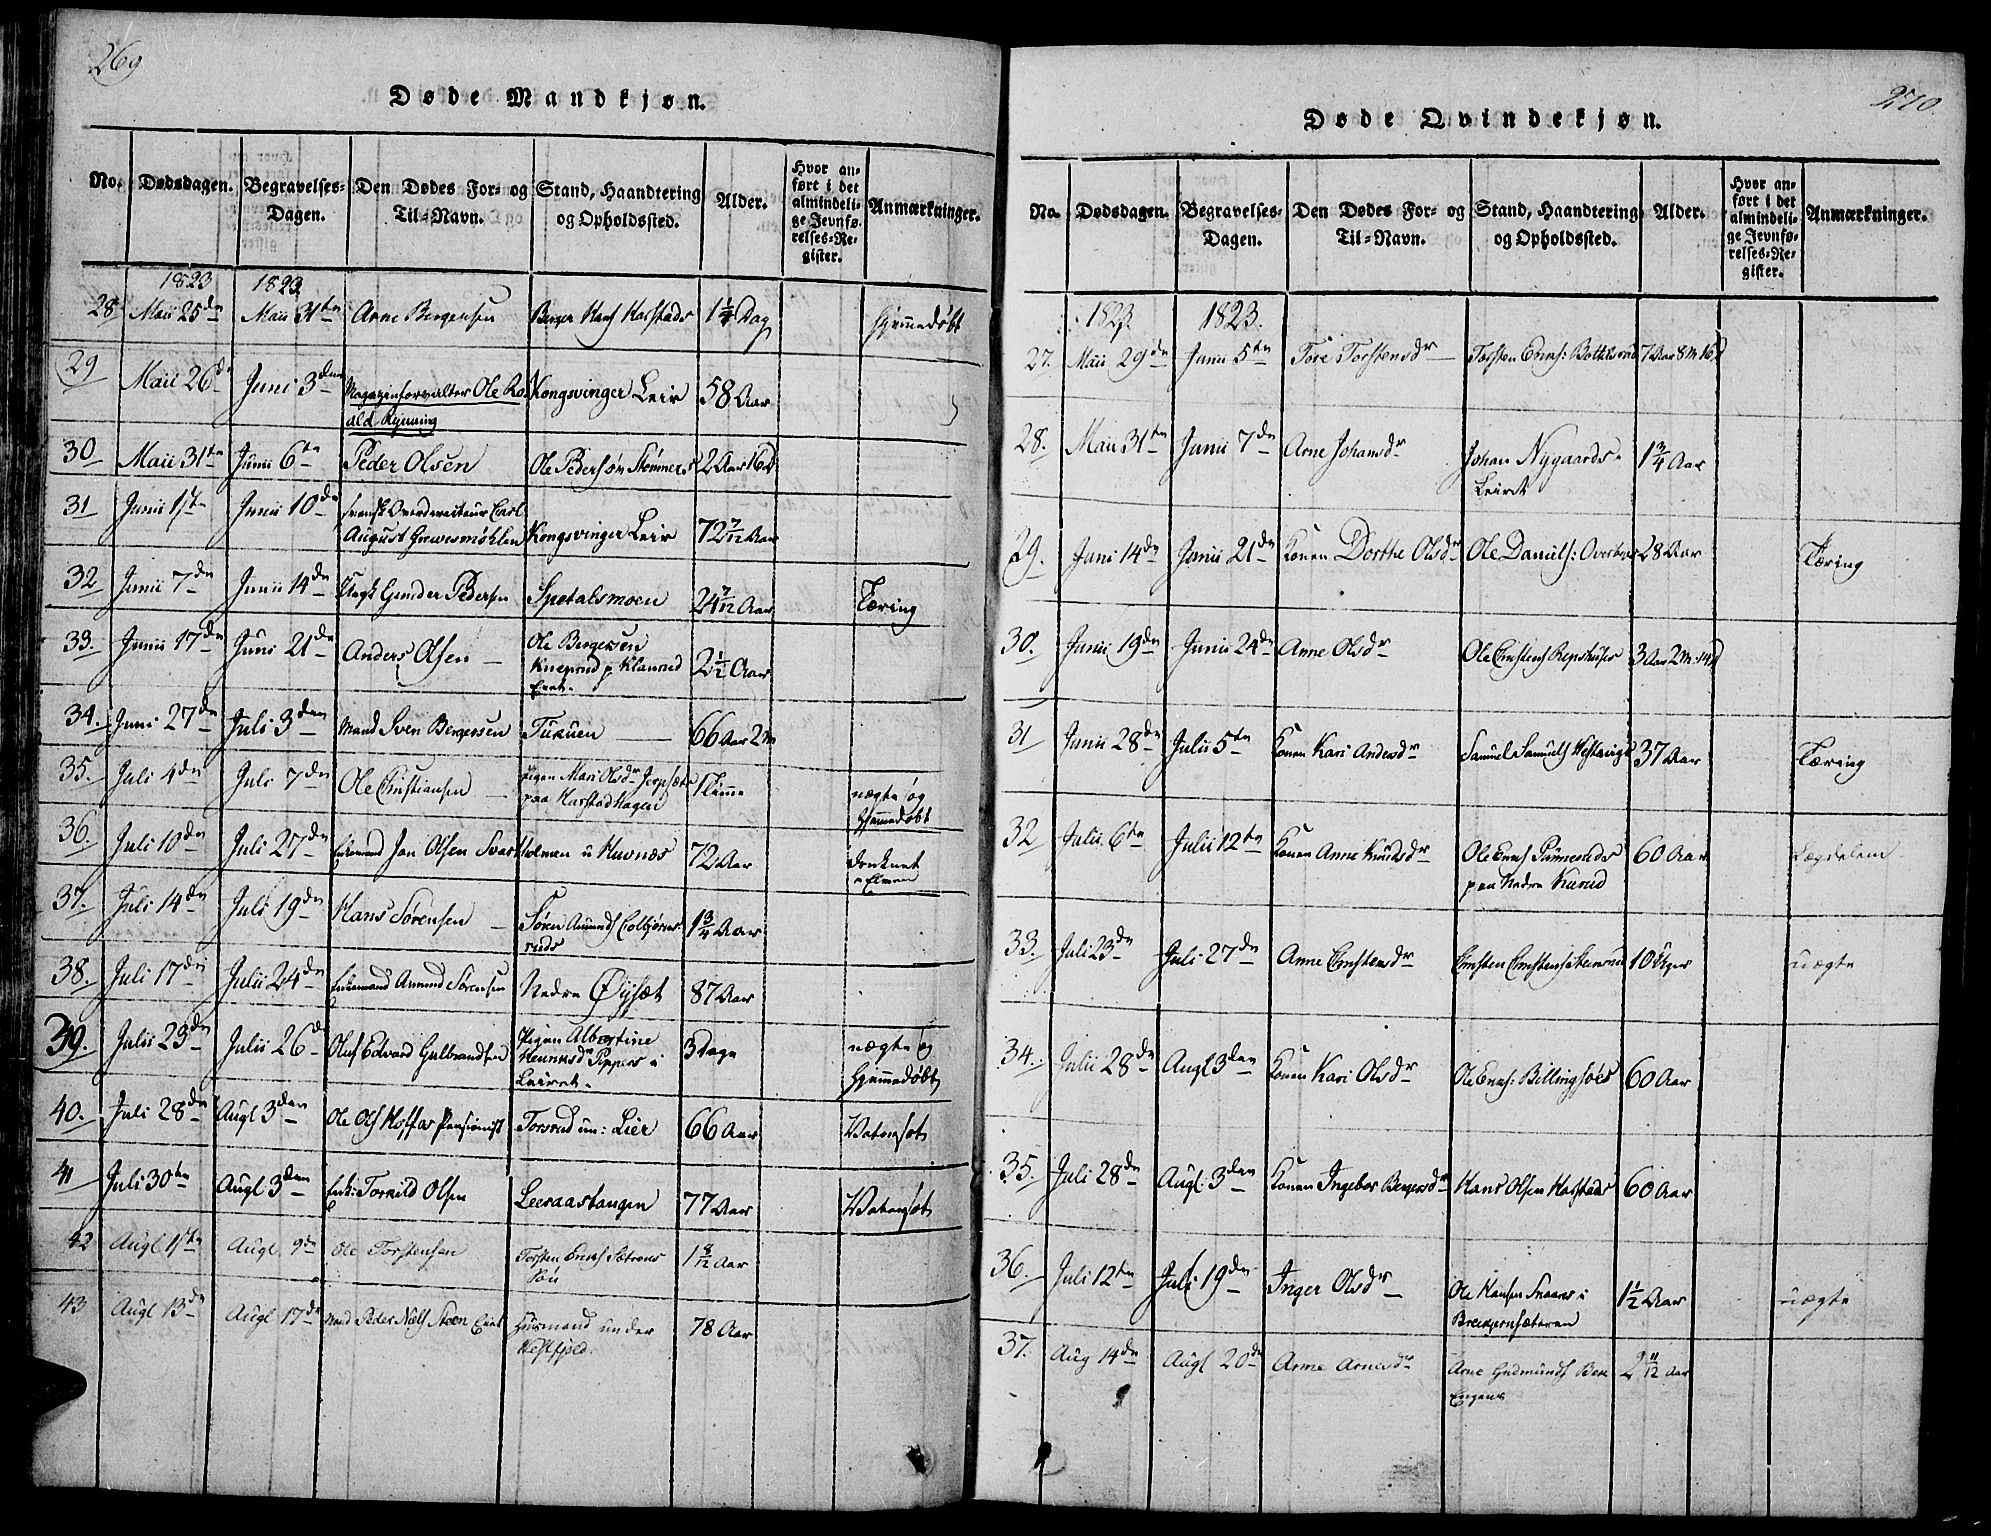 269
Døde Mandkjøn.
No. Dødsdagen. Begravelses-Dagen. Den Dødes For- og Til-Navn. Stand, Haandtering og Opholdssted. Alder. Hvor anført i det almindelige Jevnførelses-Register. Anmærkninger.
1823 1823
28 Maii 25de Maii 31te Arne Bergersen Berger Hans Harstads 1 1/4 Dag Hjemmedøbt
29 Maii 26de Juni 3den Magazinforvalter Ole Ro-
ald Rynning Kongsvinger Leir 58 Aar
30 Maii 31te Junii 6te Peder Olsen Ole Pedersøn 2 Aar 16 D
31 Junii 1ste Junii 10de Svensk Overdirecteur Carl
August Grevesmøhlen Kongsvinger Leir 72 7/12 Aar
32 Junii 7de Junii 14de Ungk Gunder Pedersen Spetalsmoen 24 7/12 Aar Tæring
33. Junii 17de Juni 21de Anders Olsen Ole Bergersen
Kneprud p Klanrud
Eiet. 2 1/2 Aar
34. Juni 27de Juli 3den Mand Sven Bergersen 66 Aar 2 M
35. Juli 4de Juli 7de Ole Christiansen Pigen Mari Olsdr
paa Harstadhagen 1 Time uægte og
Hjemmedøbt
36. Juli 10de Juli 27de Enkemand Jon Olsen Svartholmen u Huvnæs 72 Aar druknet
i Elven
37. Juli 14de Juli 19de Hans Sørensen Søren Amunds Colbjørns-
ruds 1 3/4 Aar
38. Juli 17de Julii 24de Enkemand Amund Sørensen Nedre Øysæt 87 Aar
39. Julii 23de Julii 26de Oluf Edvard Gulbrandsen Pigen Albertine
Henriksdr Poppes i
Leiret. 3 Dage uægte og
Hjemmedøbt
40. Juli 28de Augl 3den Ole Ols Hoffas Pensionist Torsrud un: Lier 66 Aar Watersot
41 Juli 30te Augl 3den Enkm: Torkild Olsen Leeraastangen 77 Aar Watersot
42 Augl 1ste Augl 9de Ole Torstensen Torsten Ericks Sætrens
1 8/12 Aar
43 Augl 13de Augl 17de Mand Peder Niels Steen Eiet Huusmand under
Westfjeld. 78 Aar
270
Døde Qvindekjøn.
No. Dødsdagen. Begravelses-Dagen. Den Dødes For- og Til-Navn. Stand, Haandtering og Opholdssted. Alder. Hvor anført i det almindelige Jevnførelses-Register. Anmærkninger.
1823. 1823.
27. Maii 29de Junii 5te Tore Torstensdr Torsten Ericks: 7 Aar 8 M 16 D
28. Maii 31te Junii 7de Arne Johansdr Johan Nygaards-
Leiret 1 3/4 Aar
29. Juni 14de Junii 21de Konen Dorthe Olsdr Ole Daniels: Overbye 28 Aar Tæring
30. Junii 19de Junii 24de Anne Olsdr Ole Christens 3 Aar 2 M. 14 D
31 Junii 28de Julii 5te Konen Kari Andersdr Samuel Samuels 37 Aar Tæring
32 Julii 6te Julii 12te Konen Anne Knudsdr Ole Ericks
paa Nedre 60 Aar Lægdelem
33. Juli 23de Juli 27de Anne Christensdr Christen Christens 10 Uger uægte
34. Julii 28de Augl 3den Konen Kari Olsdr Ole Ericks: Billingsøes 60 Aar
35. Juli 28de Augl. 3den Konen Ingebor Bergersdr Hans Olsen Harstads 60 Aar
36. Juli 12te Juli 19de Inger Olsdr Ole Hansen Snaares i
1 1/2 Aar uægte
37. Aug 14de Augl 20de Anne Arnesdr Arne Gudmunds
Engene 2 11/12 Aar